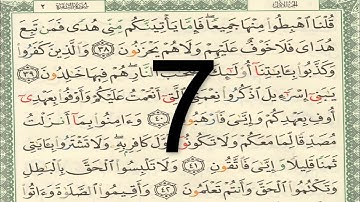 قُلْنَا ٱهْبِطُوا۟ مِنْهَا جَمِيعًا فَإِمَّا يَأْتِيَنَّكُم مِّنِّى هُدًى فَمَن تَبِعَ
هُدَاىَ فَلَا خَوْفٌ عَلَيْهِمْ وَلَا هُمْ يَحْزَنُونَ ٣٨ وَٱلَّذِينَ كَفَرُوا۟
وَكَذَّبُوا۟ بِـَٔايَـٰتِنَآ أُو۟لَـٰٓئِكَ ٱلنَّارِ هُمْ فِيهَا خَـٰلِدُونَ ٣٩
يَـٰبَنِىٓ إِسْرَٰٓءِيلَ ٱذْكُرُوا۟ نِعْمَتِىَ ٱلَّتِىٓ أَنْعَمْتُ عَلَيْكُمْ وَأَوْفُوا۟ بِعَهْدِىٓ
أُوفِ بِعَهْدِكُمْ وَإِيَّـٰىَ فَٱرْهَبُونِ ٤٠ وَءَامِنُوا۟ بِمَآ أَنزَلْتُ
مُصَدِّقًا لِّمَا مَعَكُمْ وَلَا تَكُونُوٓا۟ أَوَّلَ كَافِرٍۭ بِهِۦ ۖ وَلَا تَشْتَرُوا۟ بِـَٔايَـٰتِى
ثَمَنًا قَلِيلًا وَإِيَّـٰىَ فَٱتَّقُونِ ٤١ وَلَا تَلْبِسُوا۟ ٱلْحَقَّ بِٱلْبَـٰطِلِ
وَتَكْتُمُوا۟ ٱلْحَقَّ وَأَنتُمْ تَعْلَمُونَ ٤٢ وَأَقِيمُوا۟ ٱلصَّلَوٰةَ وَءَاتُوا۟
7